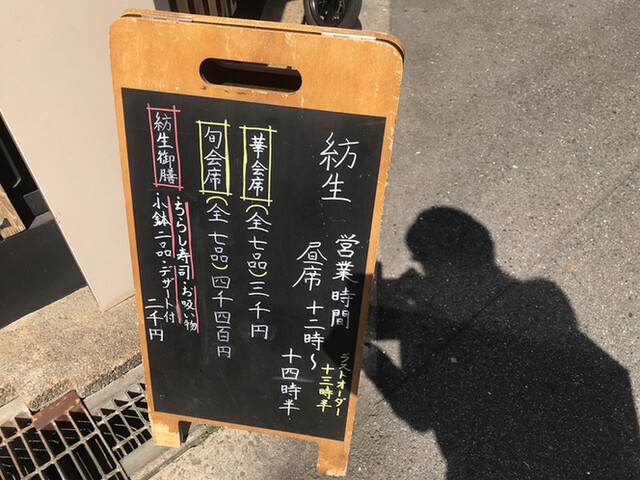 紡生
営業時間
昼席 十二時〜
十四時半
ラストオーダー
十三時半
華会席(全七品)三千円
旬会席(全七品)四千四百円
紡生御膳
・ちらし寿司・お吸い物
・小鉢二品・デザート付
二千円